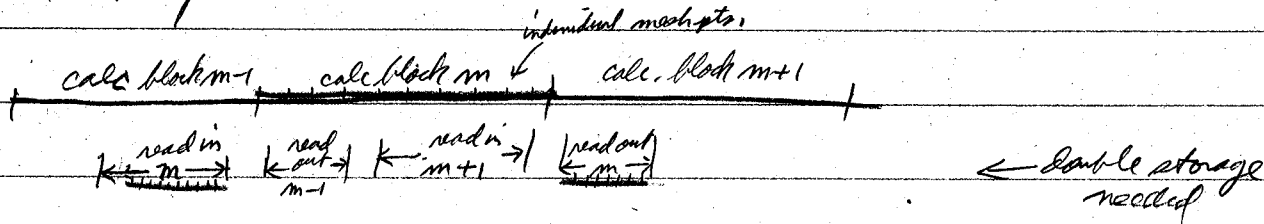 individual mesh pts.
calc block m-1 calc block m calc. block m+1
read in m read out m-1 read in m+1 read out m
← double storage needed